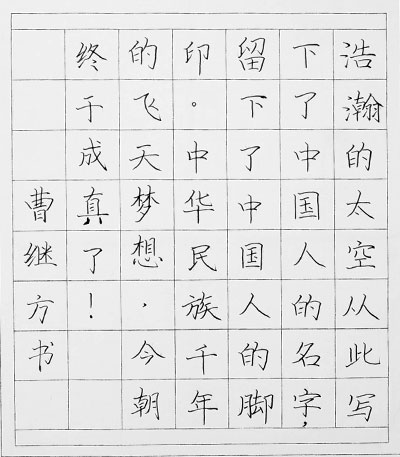 浩瀚的太空从此写
下了中国人的名字,
留下了中国人的脚
印。中华民族千年
的飞天梦想,今朝
终于成真了!
曹继方书